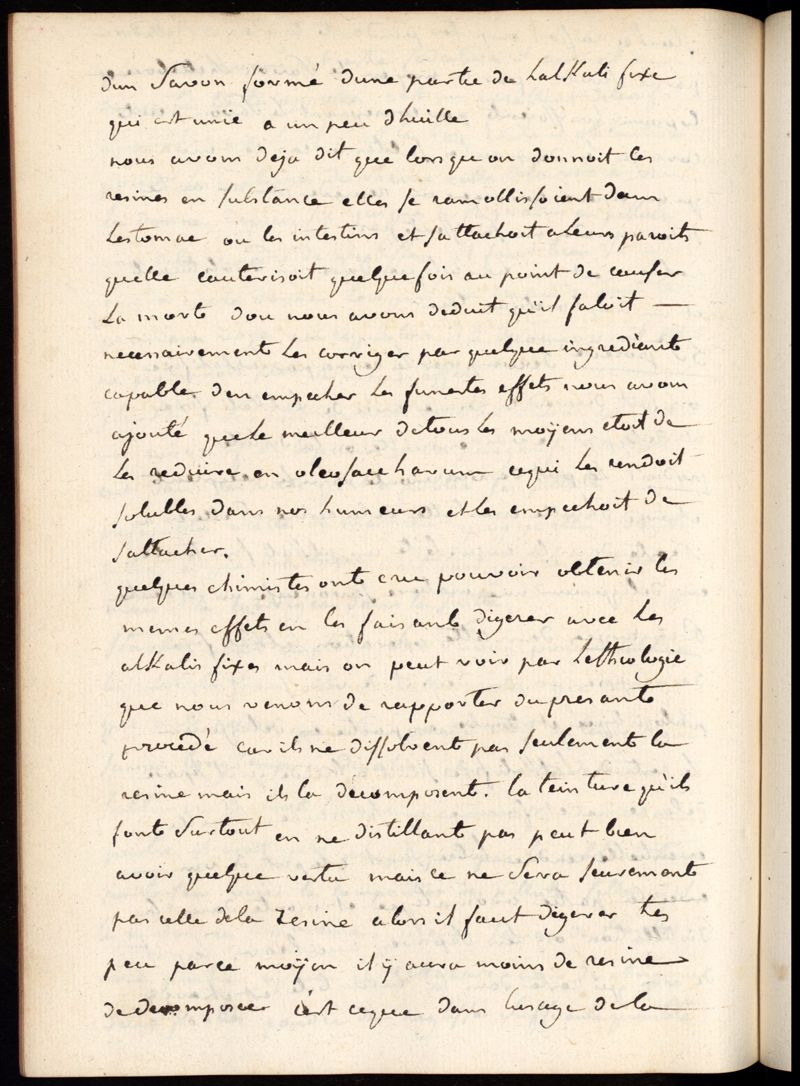 dun Savon formé dune partie de Lalkali fixe
qui est unie a un peu dhuille
nous avons deja dit que lorsquon donnoit les
resines en substance elles se ramollissoient dans
Lestomac ou les intestins et sattachoit a Leurs paroits
quelle cauterisoit quelque fois au point de causer
La morte dou nous avons deduit qu'il faloit —
necessairement Les corriger par quelque ingrediente
capable den empecher Les funestes effets nous avons
ajouté que Le meilleur de tous Les moÿens etoit de
Les reduire en oleosaccharum cequi Les rendoit
solubles dans nos humeurs et Les empechoit de
sattacher.
quelques chimistes onte cru pouvoir obtenir les
memes effets en les faisante digerer avec Les
alkalis fixes mais on peut voir par Letheologie
que nous venons de rapporter du presante
procedé car ils ne dissolvent pas seulemente la
resine mais ils la decomposent. la teinture qu'ils
fonte Surtout en ne distillant pas peut bien
avoir quelque vertu mais ce ne Sera seuremente
pas celle dela resine alors il faut digerer tres
peu parce moÿen il ÿ aura moins de resine
de decomposee c'est ceque dans Lusage de la